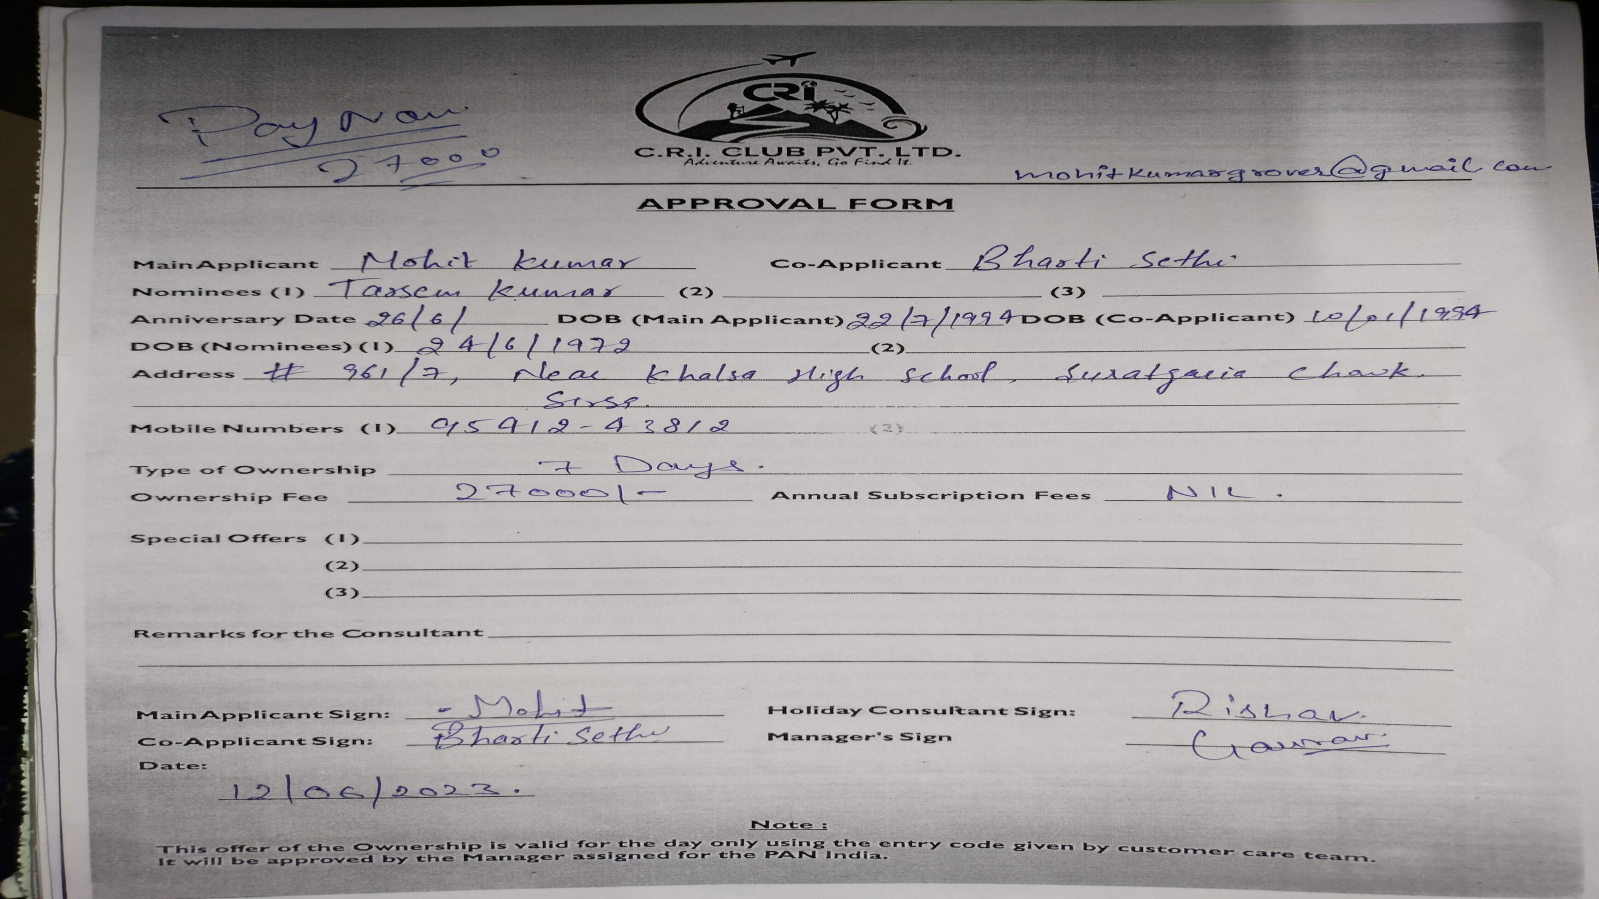 CRi
C.R.I. CLUB PVT. LTD.
Adventure Awaits, Go Find It.
Pay Now
27000
mohitkumargrover@gmail.com
APPROVAL FORM
Main Applicant Mohit Kumar Co-Applicant Bharti Sethi
Nominees (1) Tarsem Kumar (2) (3)
Anniversary Date 26/6/ DOB (Main Applicant) 22/7/1994 DOB (Co-Applicant) 10/01/1994
DOB (Nominees) (1) 24/6/1972 (2)
Address # 961/7, Near Khalsa High School, Suratgaria Chowk
Sirsa.
Mobile Numbers (1) 95412-43812 (2)
Type of Ownership 7 Days.
Ownership Fee 27000/- Annual Subscription Fees NIL.
Special Offers (1)
(2)
(3)
Remarks for the Consultant
Main Applicant Sign: Mohit Holiday Consultant Sign: Rishav.
Co-Applicant Sign: Bharti Sethi Manager's Sign Gaurav.
Date:
12/06/2023.
Note :
This offer of the Ownership is valid for the day only using the entry code given by customer care team.
It will be approved by the Manager assigned for the PAN India.